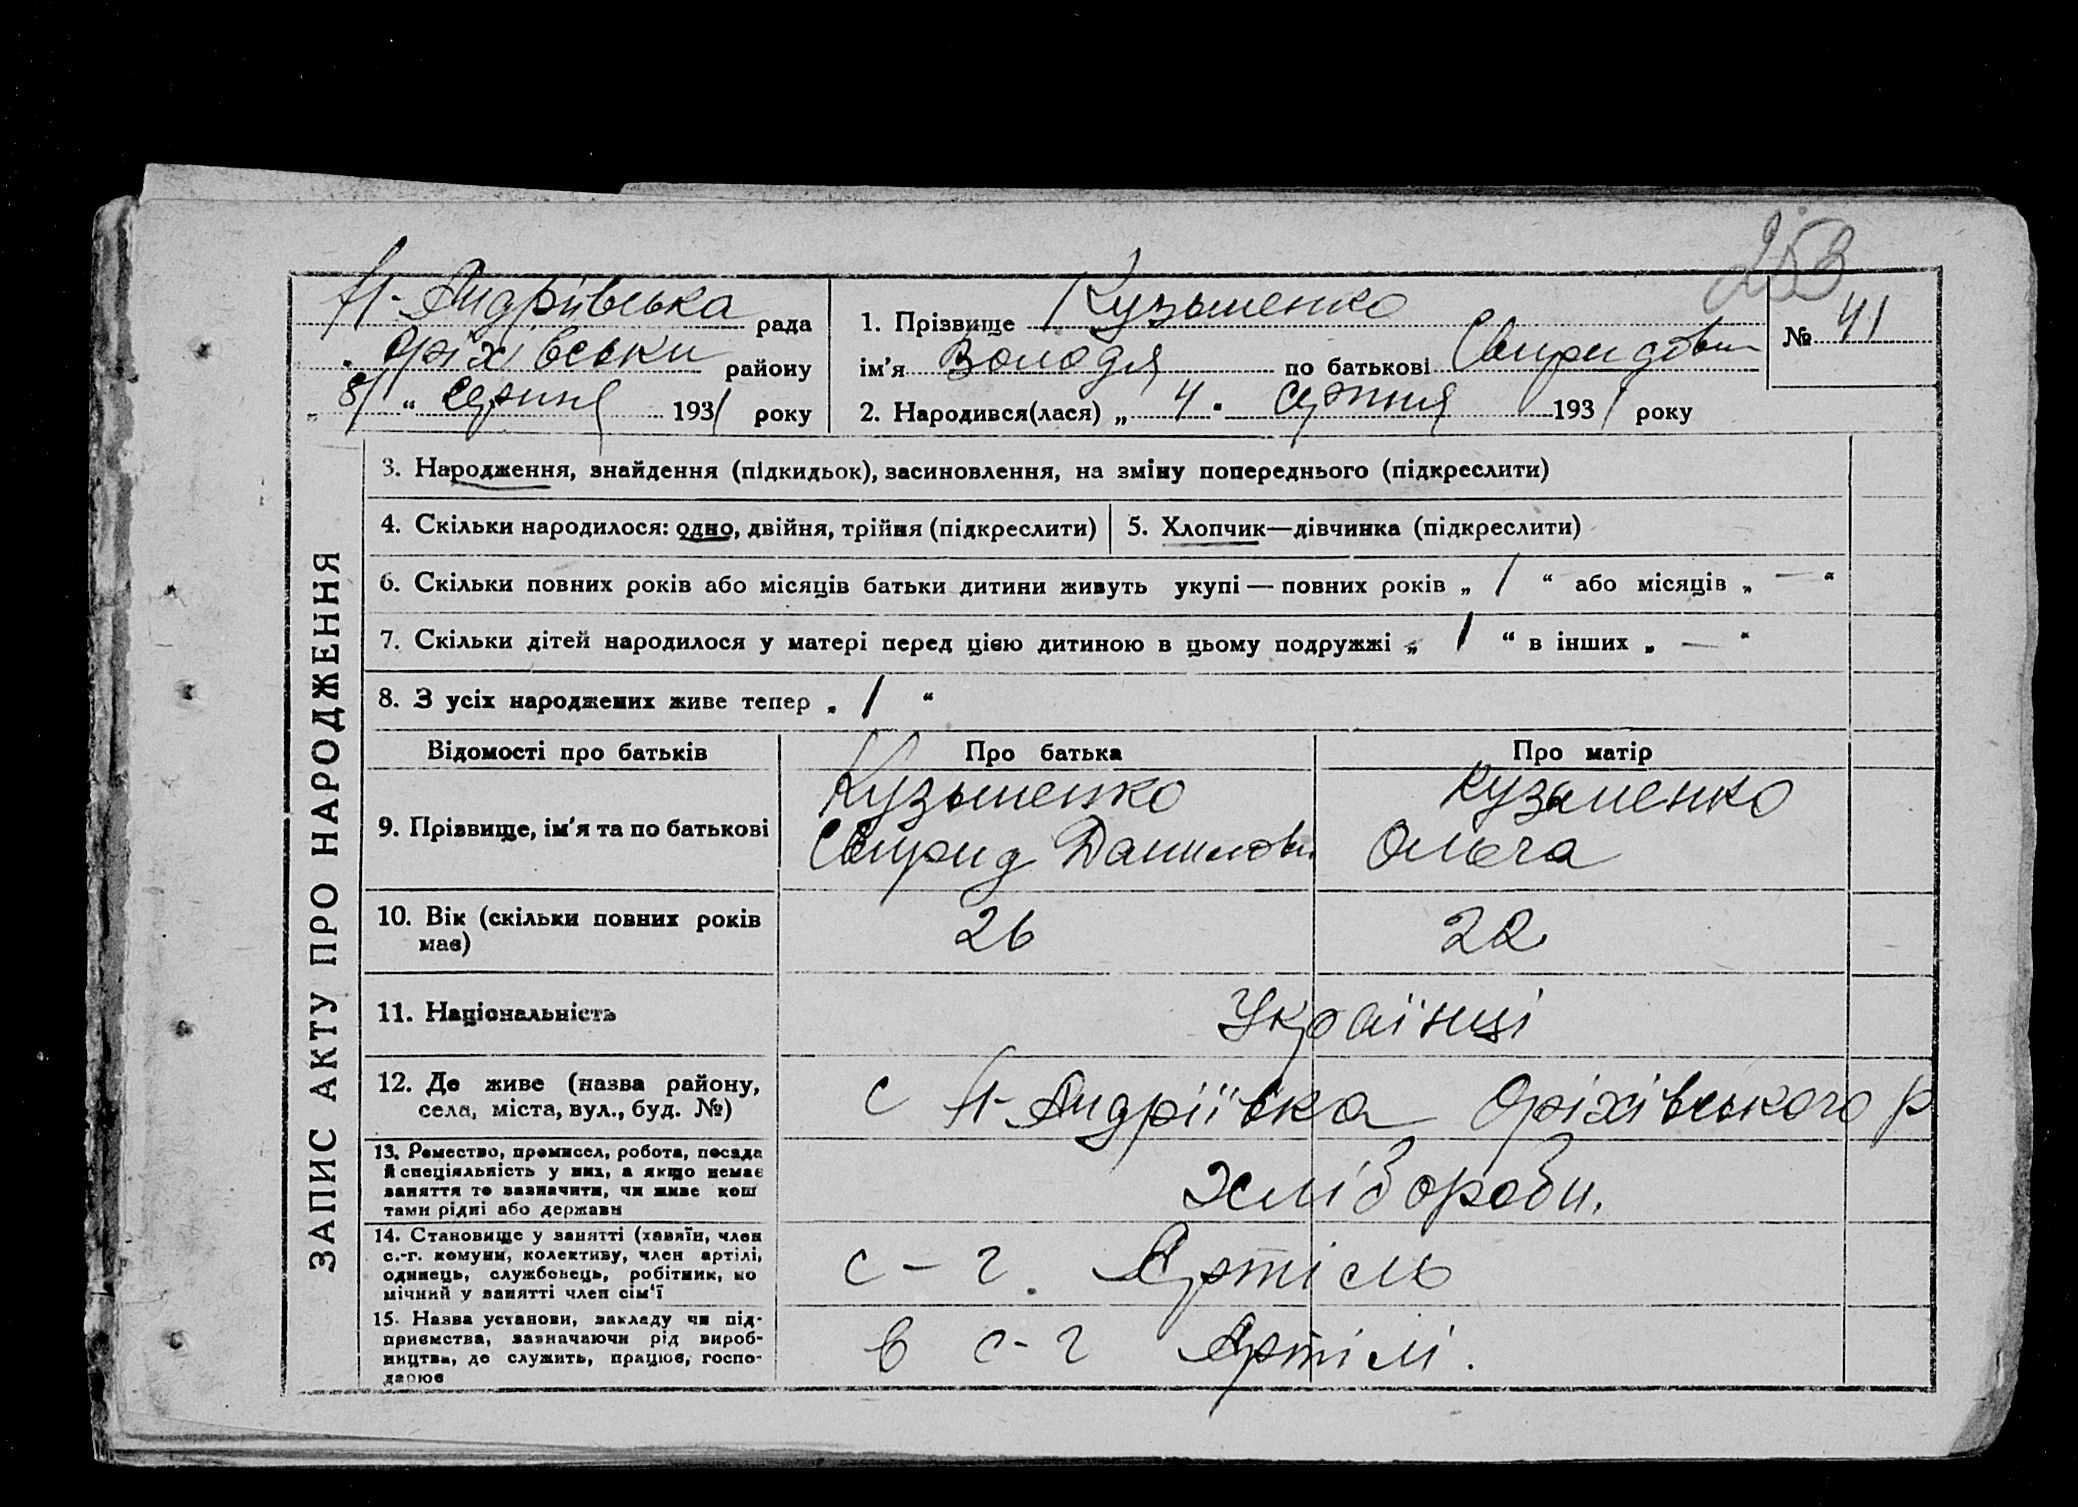 253
Н-Андрівська рада
Оріхівськи району
„ 8 “ серпня 1931 року
1. Прізвище Кузьменко
ім'я Володя по батькові Свиридович
2. Народився(лася) „ 4 " серпня 1931 року
№ 41
ЗАПИС АКТУ ПРО НАРОДЖЕННЯ
3. Народження, знайдення (підкидьок), засиновлення, на зміну попереднього (підкреслити)
4. Скільки народилося: одно, двійня, трійня (підкреслити)
5. Хлопчик—дівчинка (підкреслити)
6. Скільки повних років або місяців батьки дитини живуть укупі — повних років „ 1 “ або місяців „ — “
7. Скільки дітей народилося у матері перед цією дитиною в цьому подружжі „ 1 “ в інших „ — “
8. З усіх народжених живе тепер „ 1 “
Відомості про батьків Про батька Про матір
9. Прізвище, ім'я та по батькові
Кузьменко
Свирид Данилов
Кузьменко
Ольга
10. Вік (скільки повних років
має)
26 22
11. Національність
Українці
12. Де живе (назва району,
села, міста, вул., буд. №)
с Н-Андріївка Оріхівського р
13. Ремество, промисел, робота, посада
й спеціяльність у них, а якщо немає
заняття то зазначити, чи живе кош
тами рідні або держави
хлібороби.
14. Становище у занятті (хазяїн, член
с.-г. комуни, колективу, член артілі,
одинець, службовець, робітник, по
мічний у занятті член сім'ї
с-г. Артіль
15. Назва установи, закладу чи під-
приємства, зазначаючи рід вироб-
ництва, де служить, працює, госпо-
дарює
в с-г Артілі.